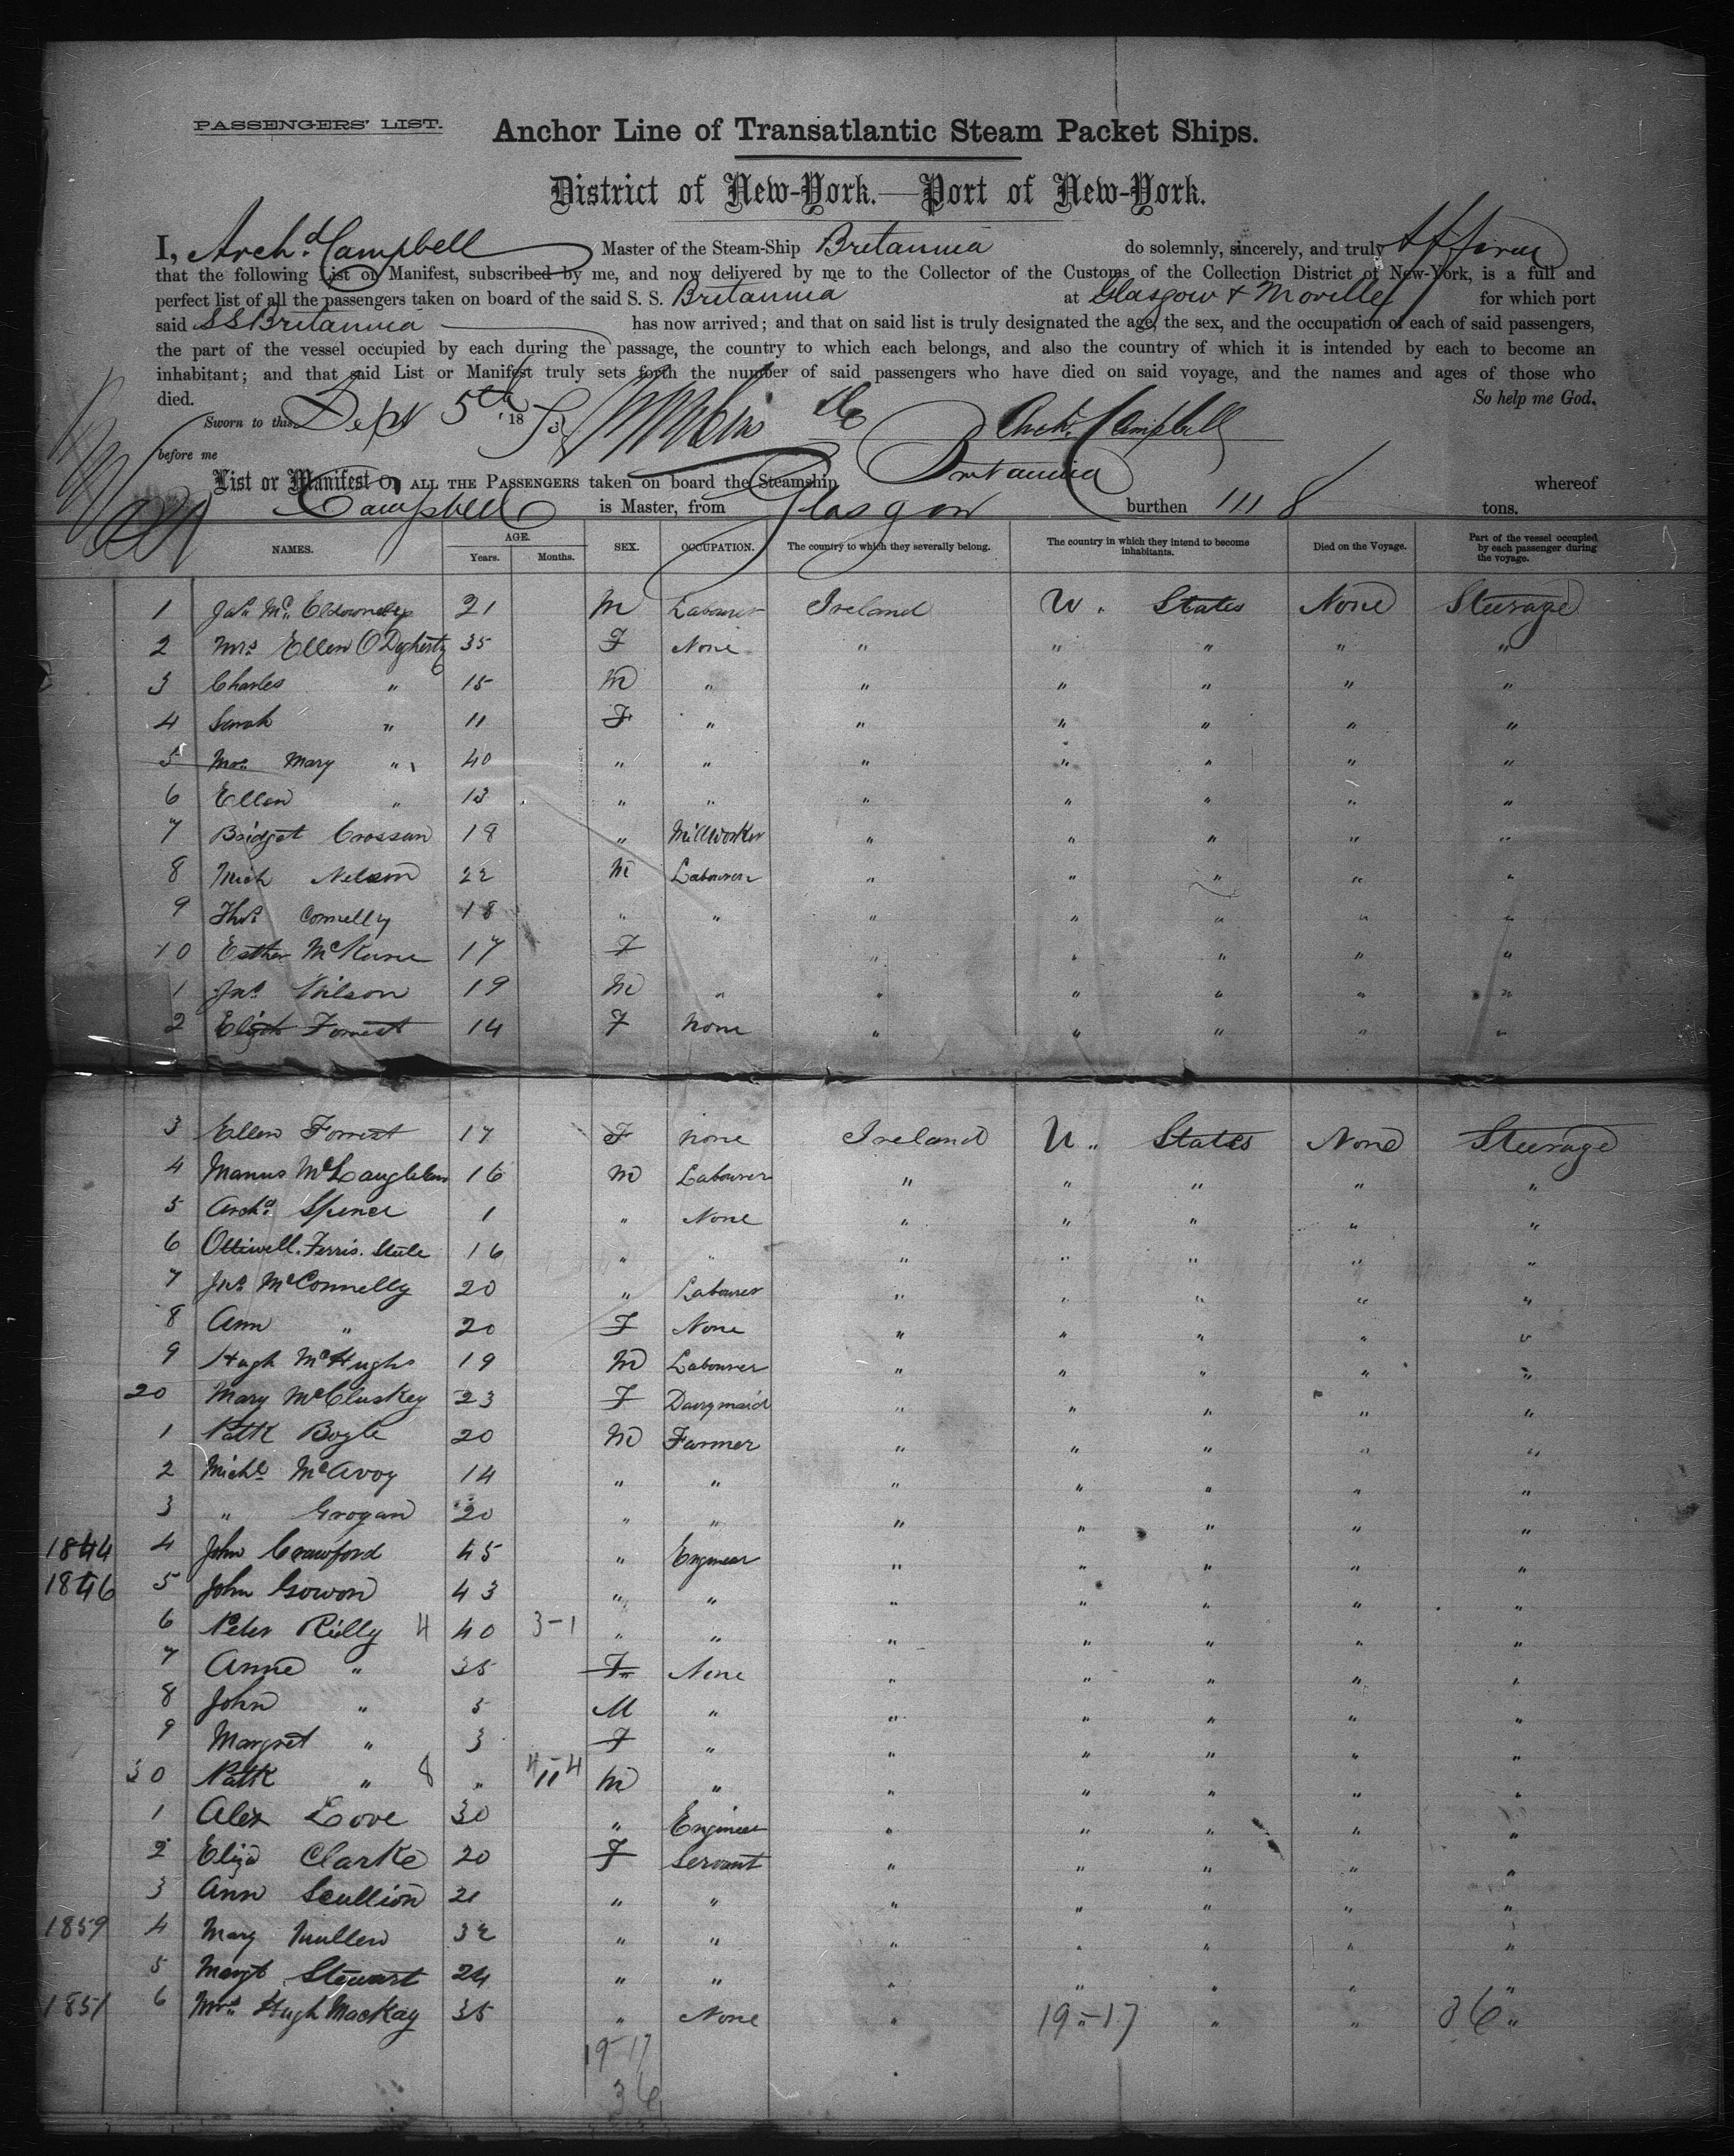 PASSENGERS' LIST.
Anchor Line of Transatlantic Steam Packet Ships.
District of New-York.—Port of New-York.
I, Archd. Campbell Master of the Steam-Ship Britannia do solemnly, sincerely, and truly Affirm
that the following List or Manifest, subscribed by me, and now delivered by me to the Collector of the Customs of the Collection District of New-York, is a full and
perfect list of all the passengers taken on board of the said S. S. Britannia at Glasgow & Moville for which port
said SS Britannia has now arrived; and that on said list is truly designated the age, the sex, and the occupation of each of said passengers,
the part of the vessel occupied by each during the passage, the country to which each belongs, and also the country of which it is intended by each to become an
inhabitant; and that said List or Manifest truly sets forth the number of said passengers who have died on said voyage, and the names and ages of those who
died. So help me God.
Sworn to this Sept 5th 18 Archd. Campbell
before me
List or Manifest OF ALL THE PASSENGERS taken on board the Steamship Britannia whereof
Campbell is Master, from Glasgow burthen 1118 tons.
NAMES. AGE. Years. Months. SEX. OCCUPATION. The country to which they severally belong. The country in which they intend to become inhabitants. Died on the Voyage. Part of the vessel occupied by each passenger during the voyage.
1 Jas. 21 M Labourer Ireland U. States None Steerage
2 Mrs Ellen O'Dogherty 35 F None " " " " "
3 Charles " 15 M " " " " " "
4 Sarah " 11 F " " " " " "
5 Mrs. Mary " 40 " " " " " " "
6 Ellen " 13 " " " " " " "
7 Bridget Crossan 18 " Millworker " " " " "
8 Mich Nelson 22 M Labourer " " " " "
9 Thos. Connelly 18 " " " " " " "
10 Esther McKune 17 F " " " " "
1 Jno. Wilson 19 M " " " " " "
2 Elizth Forrest 14 F None " " " " "
3 Ellen Forrest 17 F None Ireland U. States None Steerage
4 Manus McLaughlan 16 M Labourer " " " " "
5 Archd. Spence 1 " None " " " " "
6 Ottiwell. Ferris. Steele 16 " " " " " " "
7 Jno. McConnelly 20 " Labourer " " " " "
8 Ann " 20 F None " " " " "
9 Hugh McHughs 19 M Labourer " " " " "
20 Mary McCluskey 23 F Dairymaid " " " " "
1 Patk Boyle 20 M Farmer " " " " "
2 Michl. McAvoy 14 " " " " " " "
3 " Grogan 20 " " " " " " "
1844 4 John Crawford 45 " Engineer " " " " "
1846 5 John Gowon 43 " " " " " " "
6 Peter Rielly 4 40 3-1 " " " " " " "
7 Anne " 35 F " None " " " " "
8 John " 5 M " " " " " "
9 Margret " 3 F " " " " " "
30 Patk " 8 " 11 4-4 M " " " " " "
1 Alex Love 30 " Engineer " " " " "
2 Eliza Clarke 20 F Servant " " " " "
3 Ann Scullion 21 " " " " " " "
1859 4 Mary Mullen 32 " " " " " " "
5 Margt Stewart 24 " " " " " " "
1851 6 Mrs. Hugh MacKay 35 " None " 19-17 " " " 36 "
19-17
36